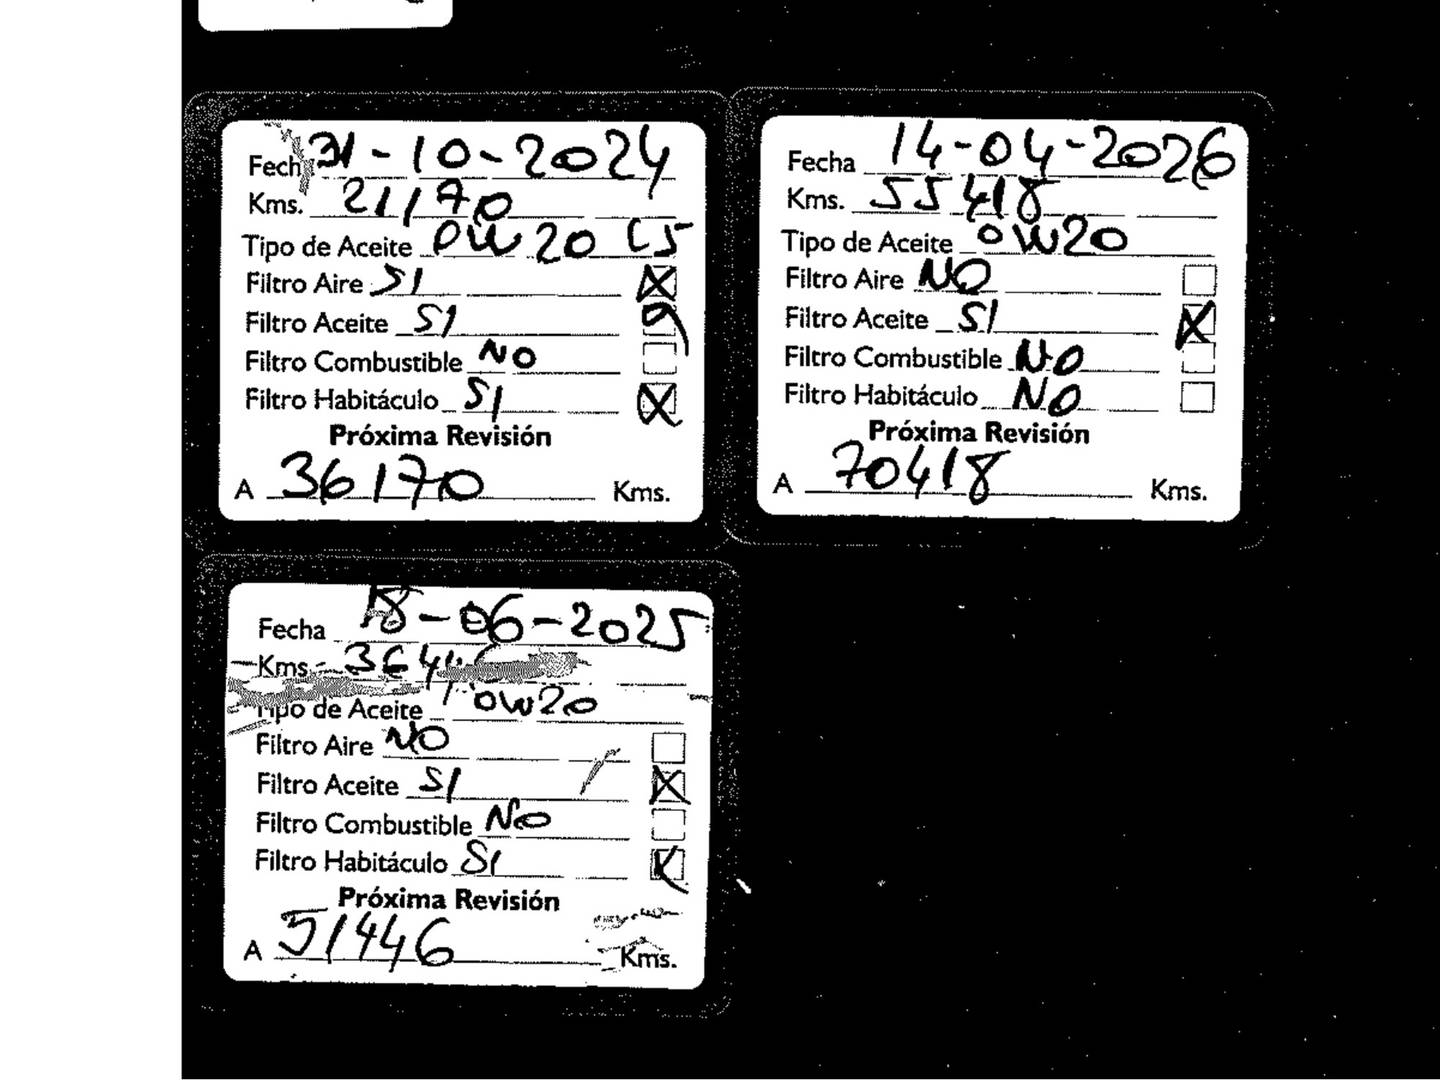 Fecha 31-10-2024
Kms. 21170
Tipo de Aceite 0W20 C5
Filtro Aire SI
Filtro Aceite SI
Filtro Combustible NO
Filtro Habitáculo SI
Próxima Revisión
A 36170 Kms.
Fecha 14-04-2026
Kms. 55418
Tipo de Aceite 0W20
Filtro Aire NO
Filtro Aceite SI
Filtro Combustible NO
Filtro Habitáculo NO
Próxima Revisión
A 70418 Kms.
Fecha 18-06-2025
Kms.
Tipo de Aceite 0W20
Filtro Aire NO
Filtro Aceite SI
Filtro Combustible NO
Filtro Habitáculo SI
Próxima Revisión
A 51446 Kms.